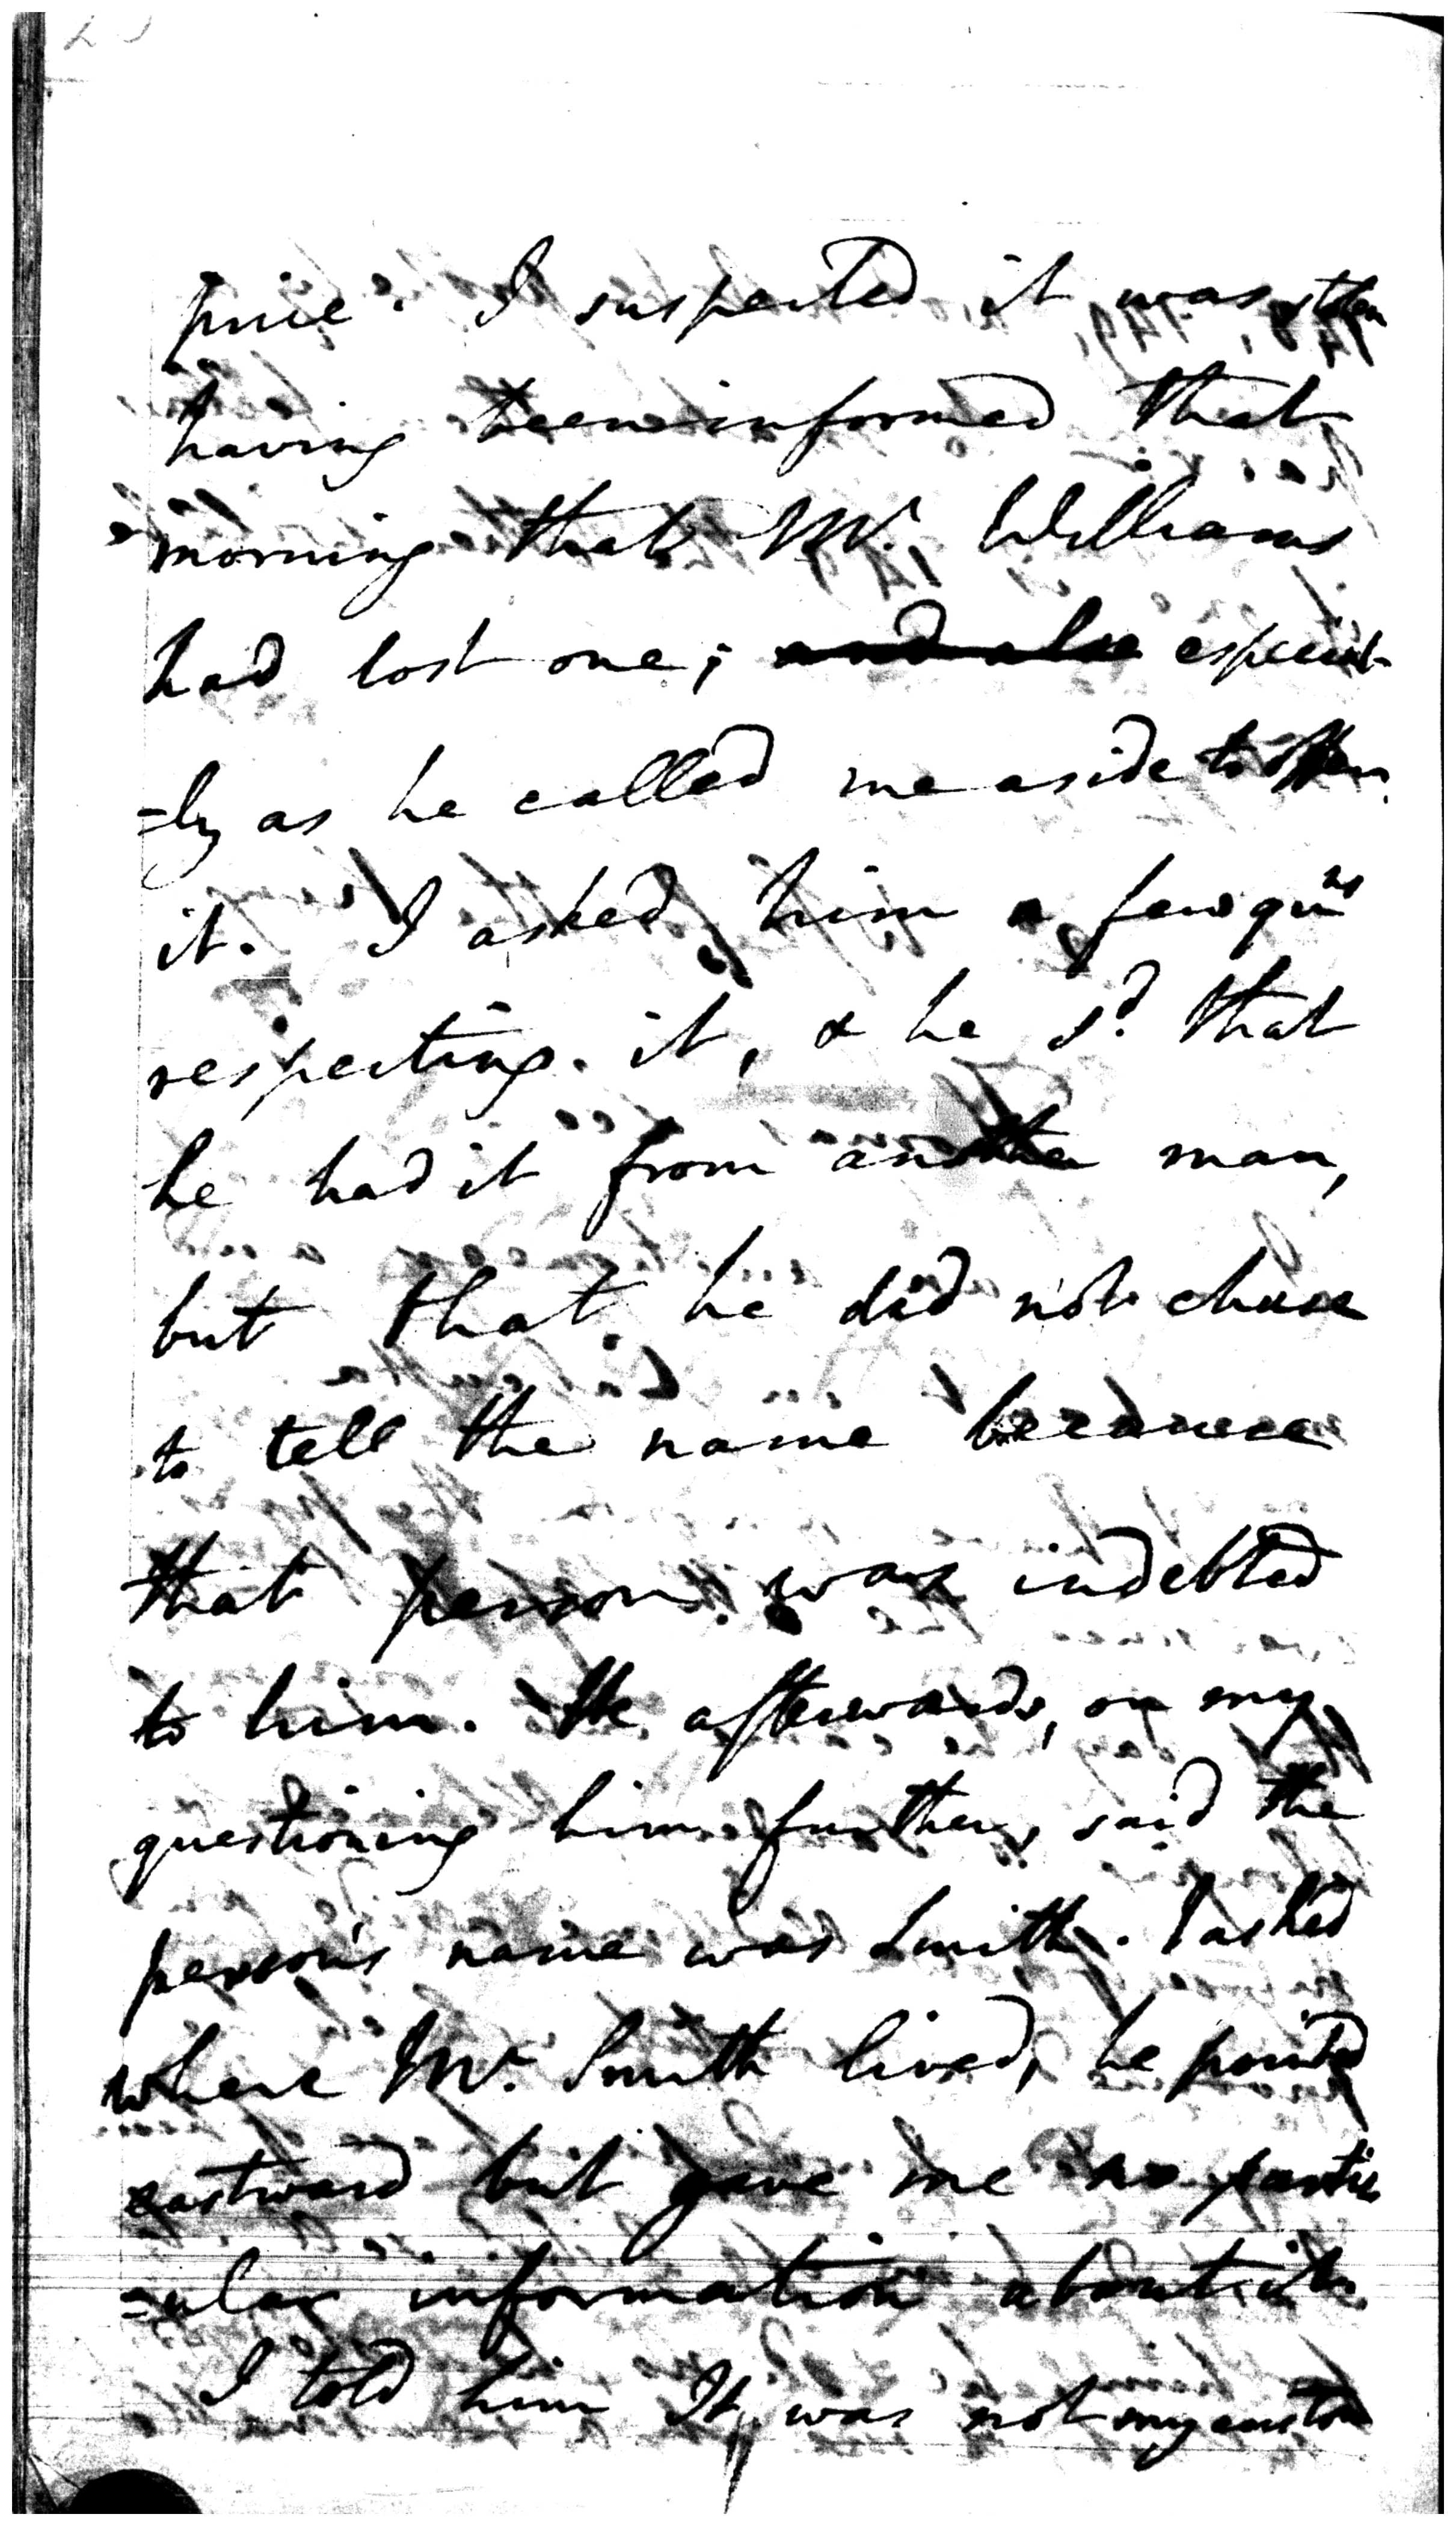 price. I suspected it was stolen
having been informed that
morning that Mr. Williams
had lost one; and also especial-
=ly as he called me aside to offer
it. I asked him a few quns
respecting it, & he sd. that
he had it from another man,
but that he did not chuse
to tell the name because
that person was indebted
to him. He afterwards, on my
questioning him further, said the
person's name was Smith. I asked
where Mr. Smith lived, he pointed
eastward but gave me no partic
=ular information about it.
I told him It was not my custom